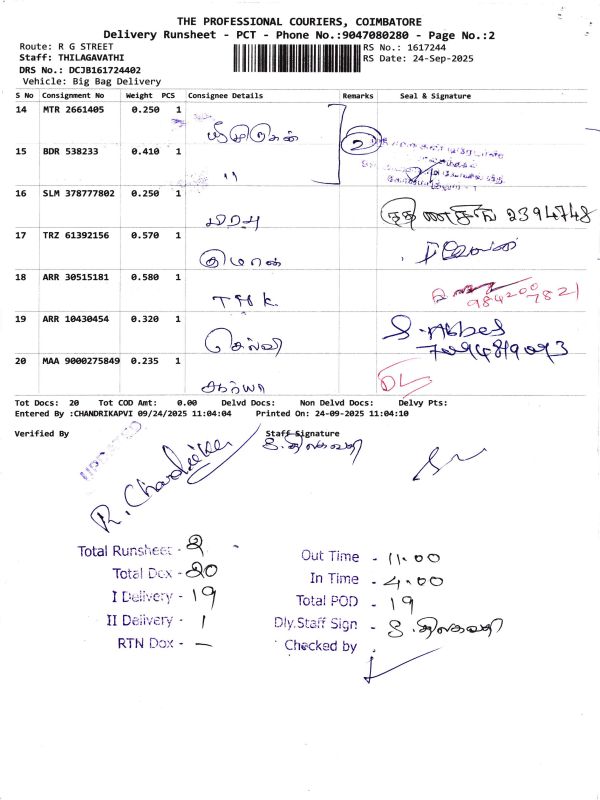 THE PROFESSIONAL COURIERS, COIMBATORE
Delivery Runsheet - PCT - Phone No.:9047080280 - Page No.:2
Route: R G STREET
RS No.: 1617244
Staff: THILAGAVATHI
RS Date: 24-Sep-2025
DRS No.: DCJB161724402
Vehicle: Big Bag Delivery
S No Consignment No Weight PCS Consignee Details Remarks Seal & Signature
14 MTR 2661405 0.250 1
2
15 BDR 538233 0.410 1
"
16 SLM 378777802 0.250 1
2394748
17 TRZ 61392156 0.570 1
குமரன்
18 ARR 30515181 0.580 1
T H K.
984200 7821
19 ARR 10430454 0.320 1
செல்வி
20 MAA 9000275849 0.235 1
DL
Tot Docs: 20 Tot COD Amt: 0.00 Delvd Docs: Non Delvd Docs: Delvy Pts:
Entered By :CHANDRIKAPVI 09/24/2025 11:04:04 Printed On: 24-09-2025 11:04:10
Verified By Staff Signature
R. Chandrika
Total Runsheet - 2
Out Time - 11.00
Total Dox - 20
In Time - 4.00
I Delivery - 19
Total POD - 19
II Delivery - 1
Dly.Staff Sign -
RTN Dox - —
Checked by